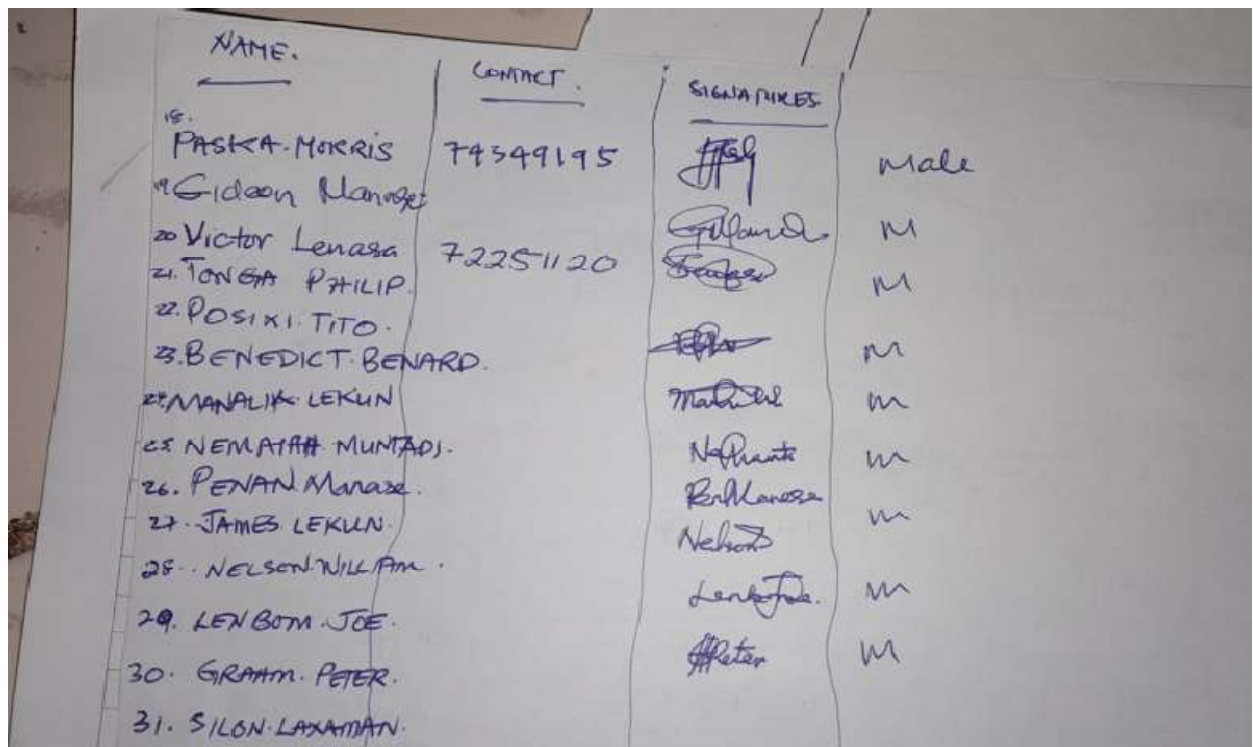 NAME. CONTACT. SIGNATURES
18. PASKA MORRIS 74349195 Male
19 Gideon
20 Victor Lenasa 72251120 M
21. TONGA PHILIP. M
22. POSIXI. TITO.
23. BENEDICT. BENARD. M
24. MANALIK LEKUN M
25 NEMATAH MUNTADI. M
26. PENAN Manase.
27. JAMES LEKUN. M
28. NELSON WILLIAM.
29. LENBOM. JOE. M
30. GRAHAM. PETER. M
31. SILON. LAXAMAN.